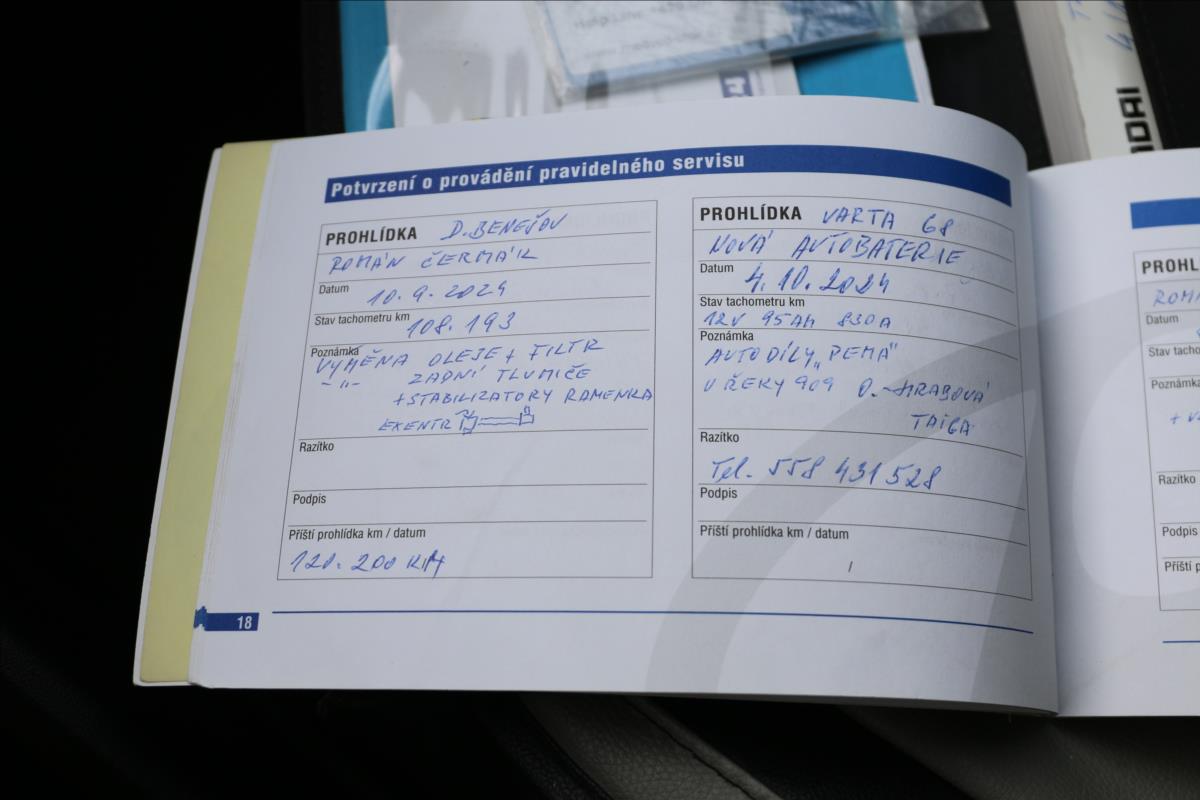 Potvrzení o provádění pravidelného servisu
PROHLÍDKA D. BENEŠOV
ROMÁN ČERMÁK
Datum 10.9.2024
Stav tachometru km 108.193
Poznámka
VÝMĚNA OLEJE + FILTR
-"- ZADNÍ TLUMIČE
+ STABILIZATORY RAMENKA
EXENTR
Razítko
Podpis
Příští prohlídka km / datum
120.200 KM
PROHLÍDKA VARTA G8
NOVÁ AUTOBATERIE
Datum 4.10.2024
Stav tachometru km
12V 95AH 830A
Poznámka
AUTODÍLY „PEMA"
U ŘEKY 909 O.-HRABOVÁ
TAIGA
Razítko
Tel. 558 431 528
Podpis
Příští prohlídka km / datum
/
18
PROHL
ROMA
Datum
Stav tacho
Poznámka
Razítko
Podpis
Příští p